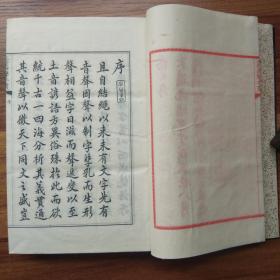 序
且自結繩以來未有文字先有
音聲因聲以制字孳乳而生形
聲相益字日滋而聲遞變以至
土音諺語方異俗殊於此而欲
統千古一四海分析其義貫通
其音聲以徵天下同文之盛豈